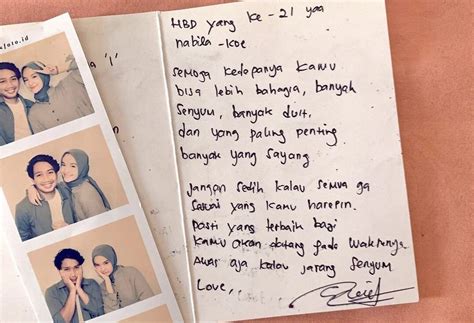 foto.id
HBD yang ke - 21 yaa
nabila - koe
semoga kedepanya kamu
bisa lebih bahagia, banyak
senyum, banyak duit,
dan yang paling penting
banyak yang sayang
jangan sedih kalau semua ga
sesuai yang kamu harepin.
pasti yang terbaik bagi
kamu akan datang pada waktunya
awas aja kalau jarang senyum
Love,